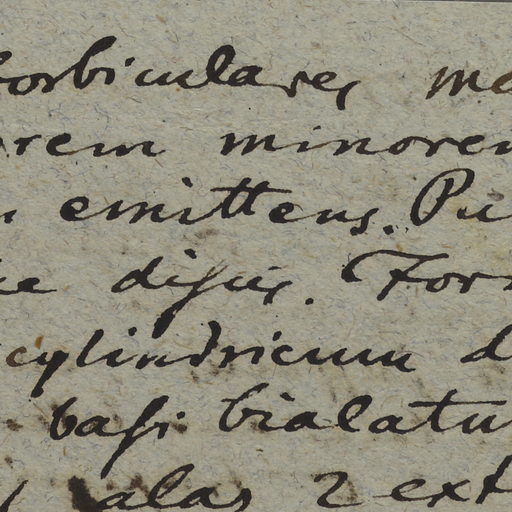 orbiculares ma
orem minorem
emittens. Pu
cylindricum d
basi bialatu
alas 2 ext